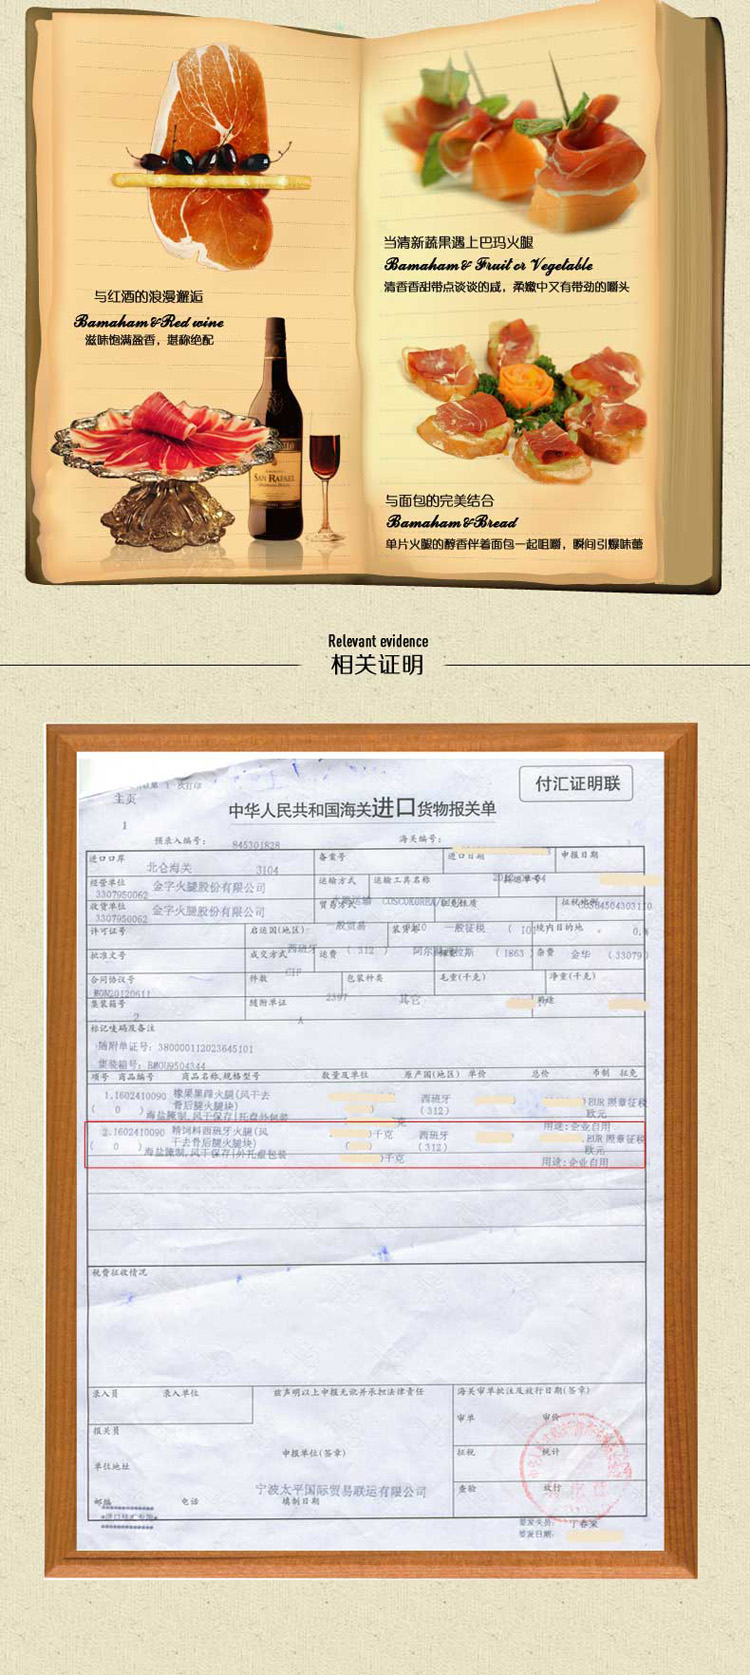 与红酒的浪漫邂逅
Bamaham&Red wine
滋味饱满盈香，堪称绝配
SAN RAFAEL
当清新蔬果遇上巴玛火腿
Bamaham& Fruit or Vegetable
清香香甜带点谈谈的咸，柔嫩中又有带劲的嚼头
与面包的完美结合
Bamaham&Bread
单片火腿的醇香伴着面包一起咀嚼，瞬间引爆味蕾
Relevant evidence
相关证明
付汇证明联
主页
1
中华人民共和国海关进口货物报关单
预录入编号： 845301828 海关编号：
进口口岸 北仑海关 3104 备案号 进口日期 申报日期
经营单位 3307950062 金字火腿股份有限公司 运输方式 运输工具名称
收货单位 3307950062 金字火腿股份有限公司 贸易方式
许可证号 启运国(地区) 西班牙 (312) 境内目的地
批准文号 成交方式 CIF 运费 杂费 金华 (33079)
合同协议号 件数 2397 包装种类 其它 毛重(千克) 净重(千克)
集装箱号 2 随附单证 A
标记唛码及备注
随附单证号：380000112023645101
集装箱号：BMOU9504344
项号 商品编号 商品名称,规格型号 数量及单位 原产国(地区) 单价 总价 币制 征免
1.1602410090 橡果黑蹄火腿(风干去 西班牙 EUR 照章征税
( 0 ) 骨后腿火腿块) (312) 欧元
海盐腌制,风干保存|托盘外包装 千克 用途:企业自用
2.1602410090 精饲料西班牙火腿(风 千克 西班牙 EUR 照章征税
( 0 ) 干去骨后腿火腿块) (312) 欧元
海盐腌制,风干保存|外托盘包装 千克 用途:企业自用
税费征收情况
录入员 录入单位 兹声明以上申报无讹并承担法律责任 海关审单批注及放行日期(签章)
审单 审价
报关员
申报单位(签章) 征税 统计
单位地址
宁波太平国际贸易联运有限公司 查验 放行
邮编 电话 填制日期
签发关员：丁春荣
签发日期：